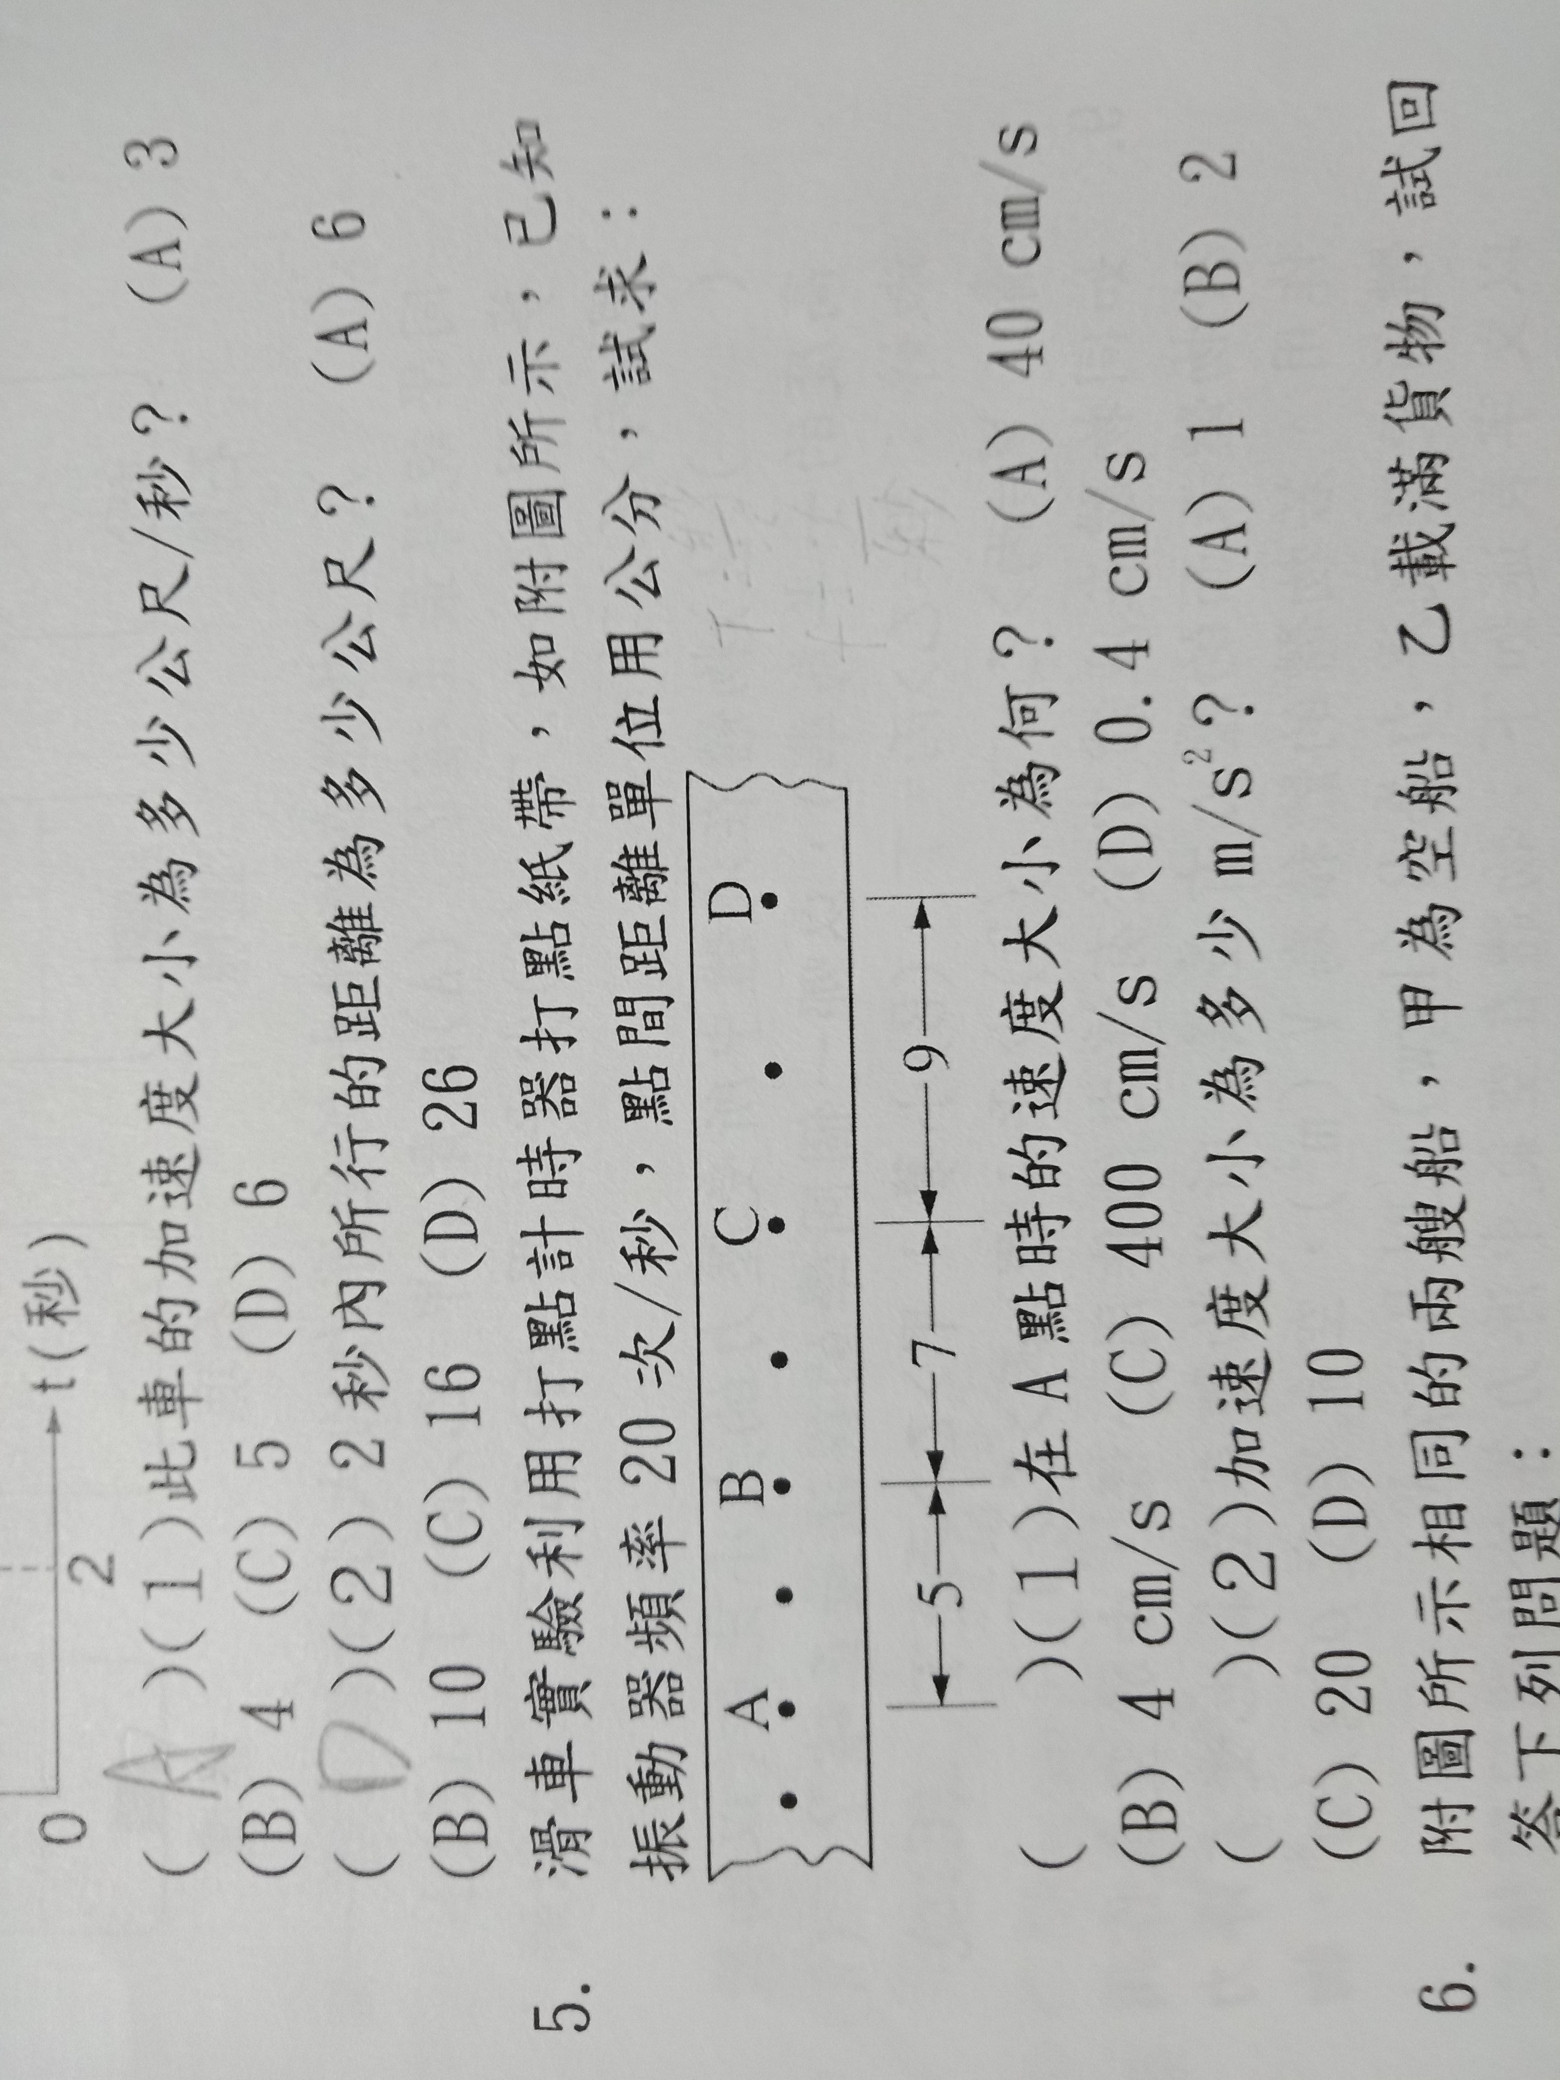 t(秒)
0 2
( A )(1)此車的加速度大小為多少公尺/秒? (A) 3
(B) 4 (C) 5 (D) 6
( D )(2) 2 秒內所行的距離為多少公尺? (A) 6
(B) 10 (C) 16 (D) 26
5. 滑車實驗利用打點計時器打點紙帶,如附圖所示,已知
振動器頻率 20 次/秒,點間距離單位用公分,試求:
A B C D
5 7 9
( )(1)在 A 點時的速度大小為何? (A) 40 cm/s
(B) 4 cm/s (C) 400 cm/s (D) 0.4 cm/s
( )(2)加速度大小為多少 m/s²? (A) 1 (B) 2
(C) 20 (D) 10
6. 附圖所示相同的兩艘船,甲為空船,乙載滿貨物,試回
答下列問題: